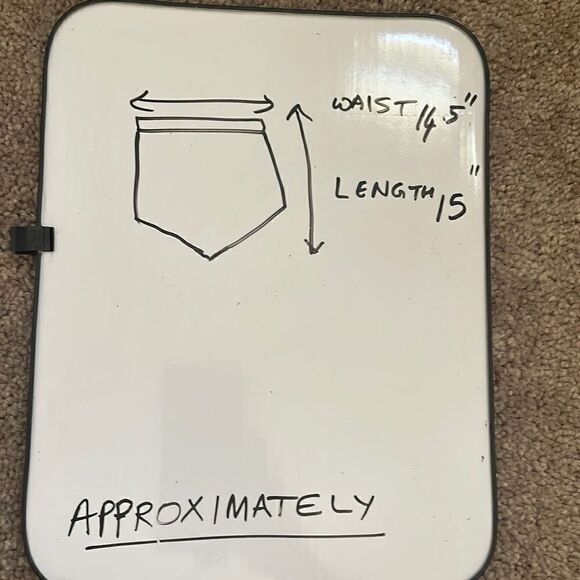 WAIST 14.5"
LENGTH 15"
APPROXIMATELY